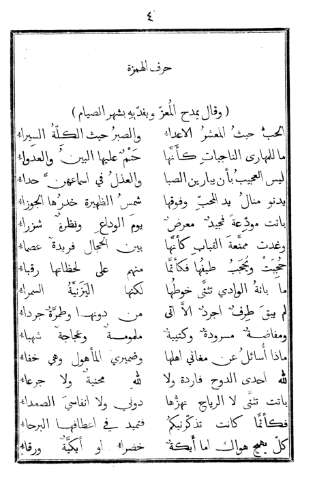 ٤
حرف الهمزة
(وقال يمدح المعزّ ويفدّيه بشهر الصيام)
الحبّ حيثُ المعشرُ الاعداء والصبرُ حيث الكلّة السيراء
ما للمهارى الناجيات كأنّها حَتْمٌ عليها البينُ والعدواء
ليس العجيبُ بأن يبارين الصبا والعذلُ في اسماعهنّ حداء
يدنو منال يد المحبّ وفوقها شمسُ الظهيرة خدرُها الجوزاء
بانت مودّعة فجيدٌ معرضٌ يوم الوداع ونظرةٌ شزراء
وغدت ممنّعة القباب كأنّها بين الحجال فريدة عصماء
حُجبت ويُحجب طيفُها فكأنّما منهم على لحظاتها رقباء
ما بانةُ الوادي تثنّى خوطُها لكنّها اليَزَنيّةُ السمراء
لم يبقَ طرفٌ اجردٌ الّا أتى من دونها وطمرّةٌ جرداء
ومفاضةٌ مسرودةٌ وكتيبةٌ ملمومةٌ وعجاجةٌ شهباء
ماذا أسائل عن مغاني اهلها وضميري المأهول وهي خفاء
لله احدى الدوح فاردة ولا لله محنيةٌ ولا جرعاء
بانت تثنّى لا الرياح تهزّها دوني ولا انفاسيَ الصعداء
فكأنّما كانت تذكّرنيكمُ فتميد في اعطافها البرحاء
كلّ يهيج هواك إما أيكةٌ خضراء او أيكيّة ورقاء